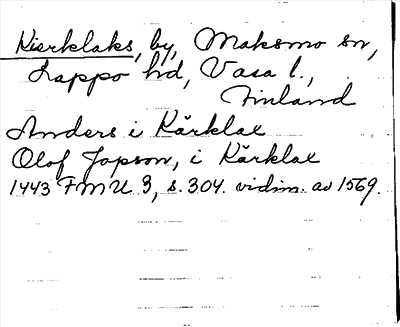 Kierklaks, by, Maksmo sn,
Lappo hd, Vasa l.,
Finland
Anders i Kärklax
Olof Japson, i Kärklax
1443 FMU 3, s. 304. vidim. av 1569.